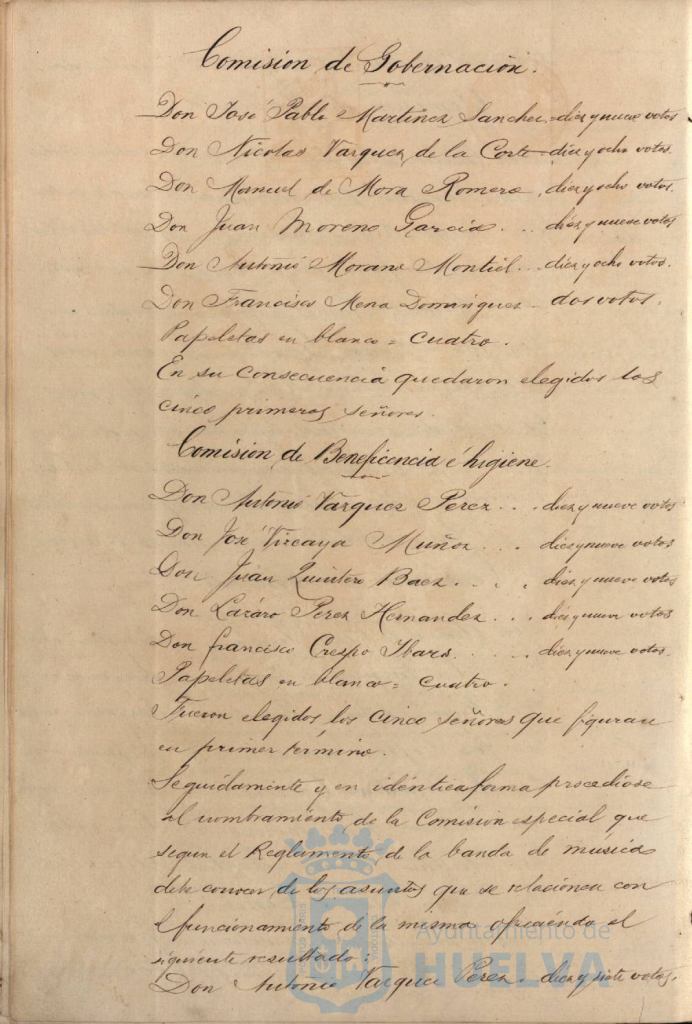 Comision de Gobernación.
Don José Pablo Martinez Sanchez, diez y nueve votos
Don Nicolas Vazquez de la Corte diez y ocho votos.
Don Manuel de Mora Romero, diez y ocho votos.
Don Juan Moreno García... diez y nueve votos
Don Antonio Morano Montiel... diez y ocho votos.
Don Francisco Mena Dominguez - dos votos.
Papeletas en blanco = cuatro.
En su consecuencia quedaron elegidos los
cinco primeros señores.
Comision de Beneficencia é higiene.
Don Antonio Vazquez Perez... diez y nueve votos
Don José Vizcaya Muñoz... diez y nueve votos
Don Juan Quintero Baez.... diez y nueve votos
Don Lázaro Perez Hernandez... diez y nueve votos
Don Francisco Crespo Ibars..... diez y nueve votos.
Papeletas en blanco = cuatro.
Fueron elegidos los cinco señores que figuran
en primer término.
Seguidamente y en idéntica forma procediose
al nombramiento de la Comision especial que
segun el Reglamento de la banda de musica
debe conocer de los asuntos que se relacionen con
el funcionamiento de la misma ofreciendo el
siguiente resultado:
Don Antonio Vazquez Perez. diez y siete votos.
Ayuntamiento de
HUELVA